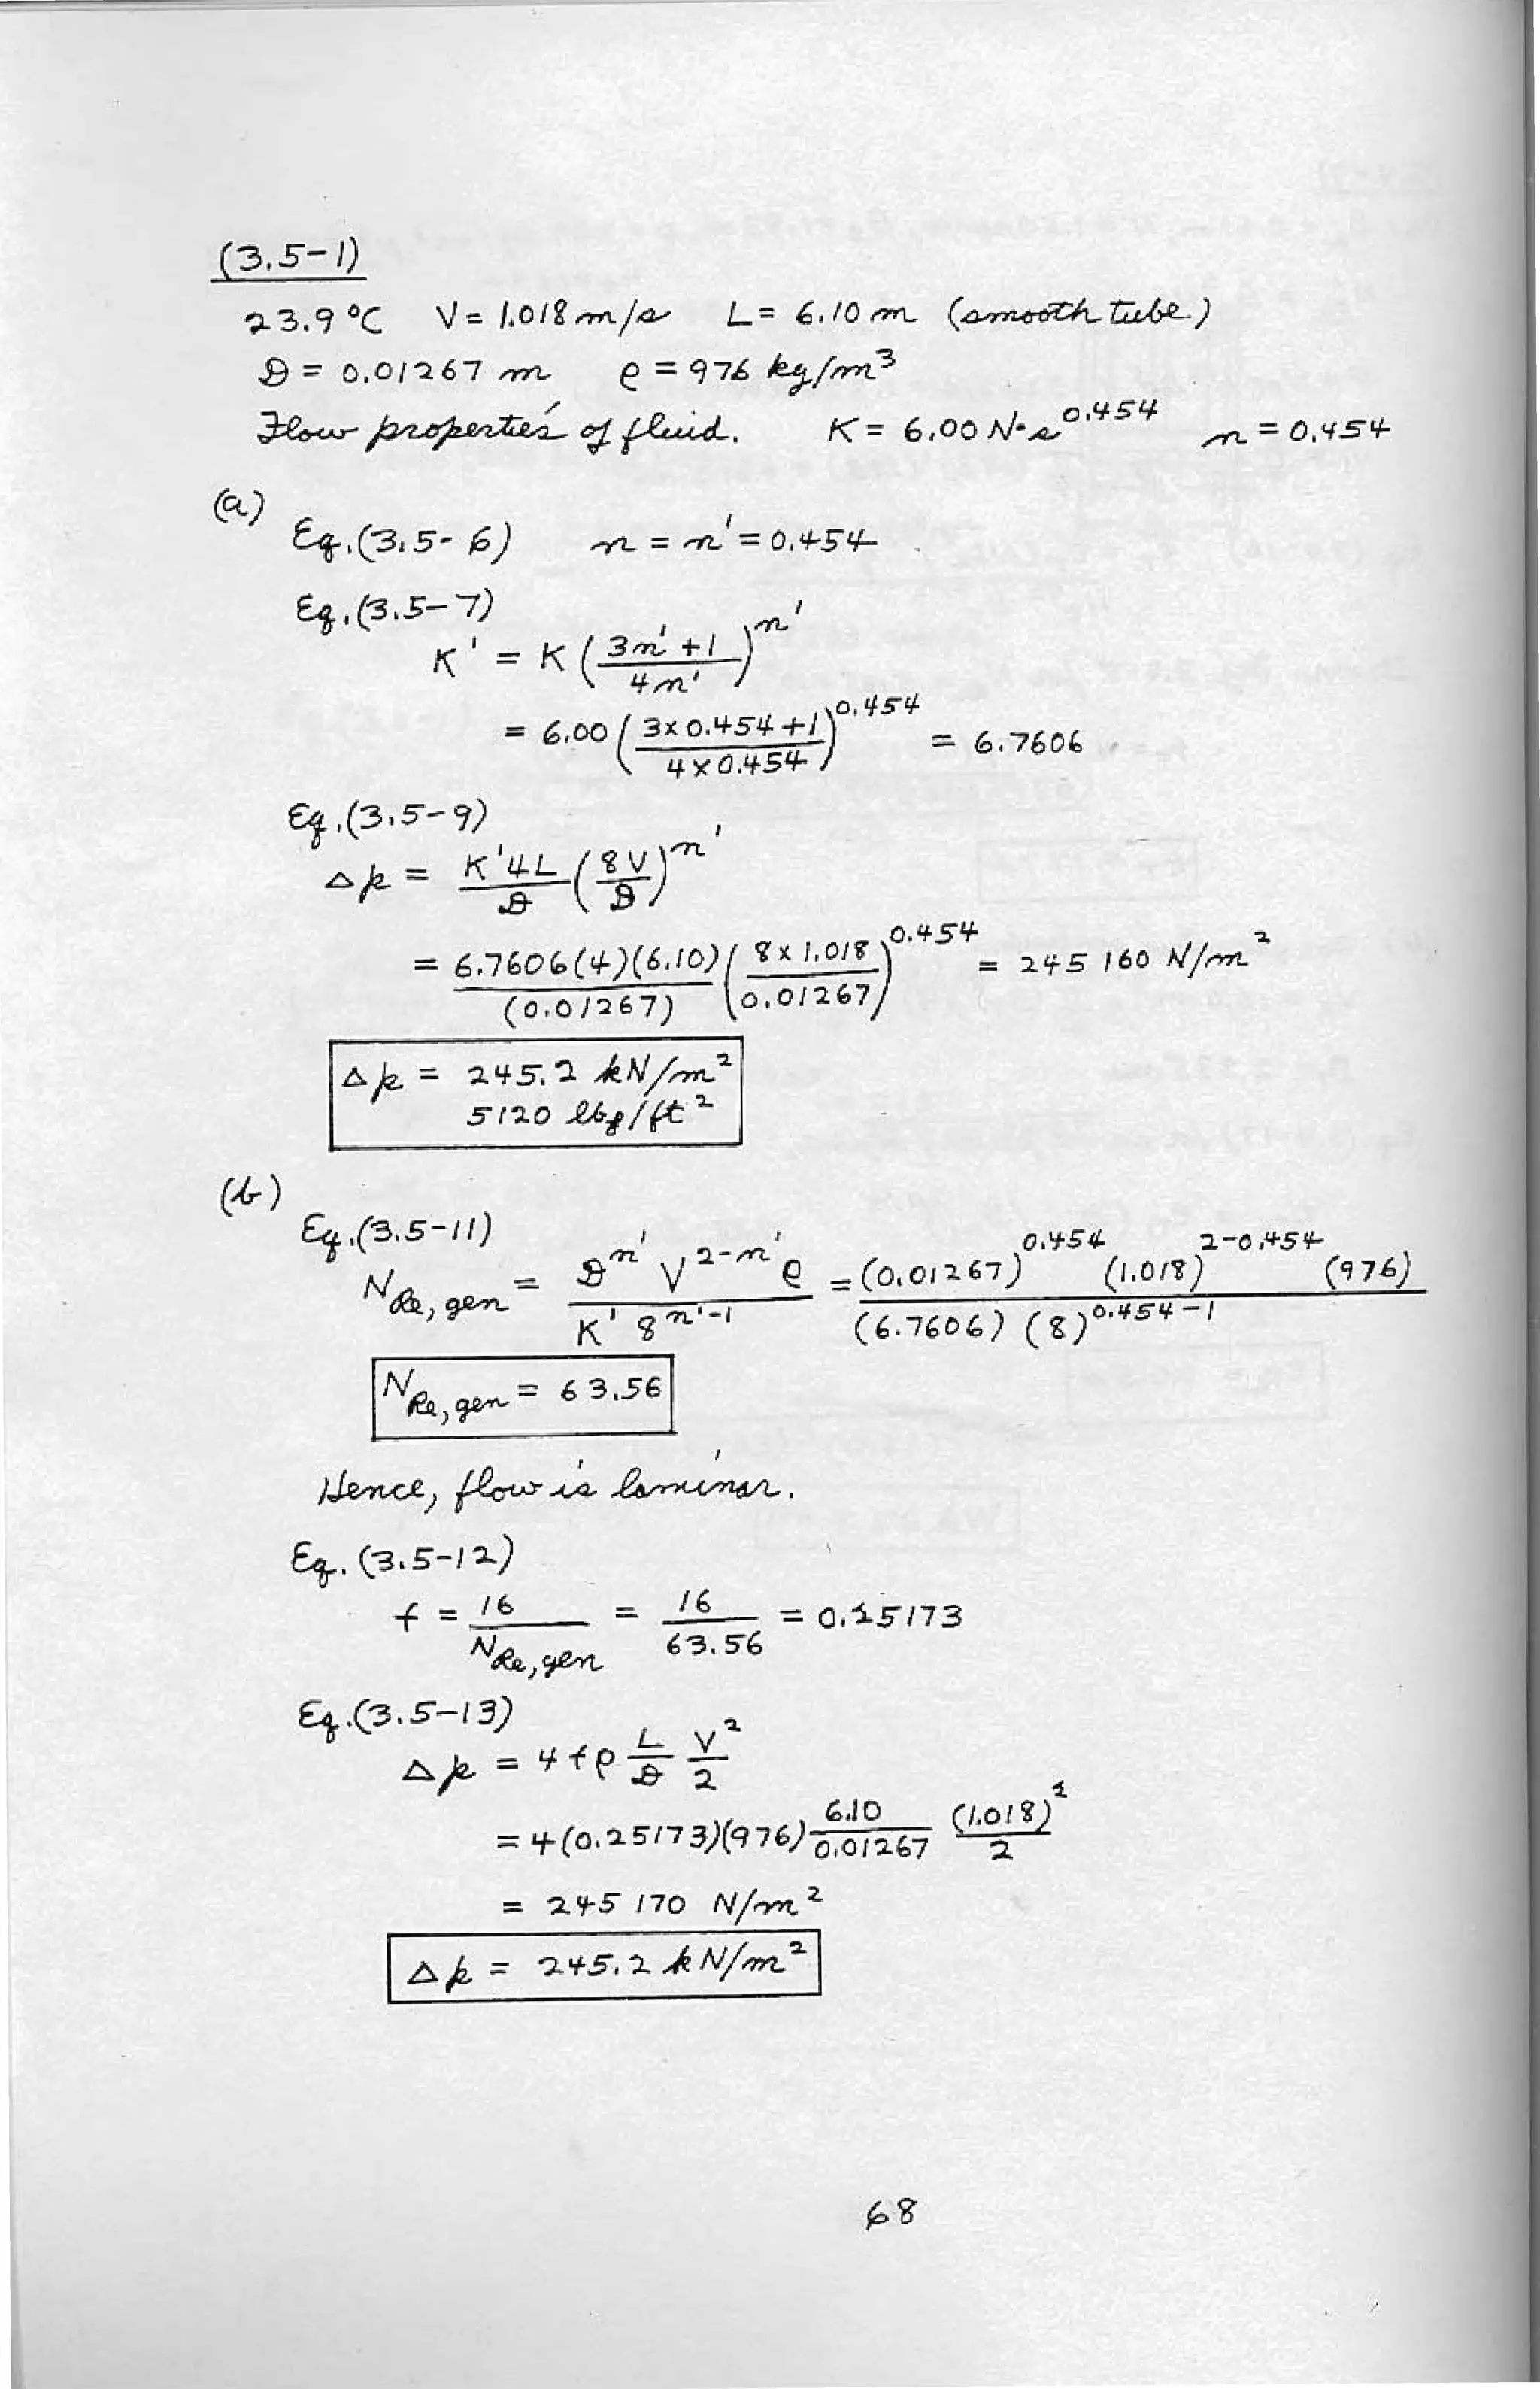 (3.5-1)
23.9 °C V = 1.018 m/s L = 6.10 m (smooth tube)
D = 0.01267 m ρ = 976 kg/m³
Flow properties of fluid. K = 6.00 N·s^0.454 n = 0.454
(a)
Eq.(3.5-6) n = n' = 0.454
Eq.(3.5-7)
K' = K ((3n'+1)/(4n'))^n'
= 6.00 ((3x0.454+1)/(4x0.454))^0.454 = 6.7606
Eq.(3.5-9)
Δp = (K'4L/D)(8V/D)^n'
= (6.7606(4)(6.10)/(0.01267)) (8x1.018/0.01267)^0.454 = 245 160 N/m²
Δp = 245.2 kN/m²
5120 lbf/ft²
(b)
Eq.(3.5-11)
N_Re,gen = (D^n' V^(2-n') ρ)/(K' 8^(n'-1)) = ((0.01267)^0.454 (1.018)^(2-0.454) (976))/((6.7606) (8)^(0.454-1))
N_Re,gen = 63.56
Hence, flow is laminar.
Eq. (3.5-12)
f = 16/N_Re,gen = 16/63.56 = 0.25173
Eq.(3.5-13)
Δp = 4fρ (L/D) (V²/2)
= 4(0.25173)(976) (6.10/0.01267) ((1.018)²/2)
= 245 170 N/m²
Δp = 245.2 kN/m²
68